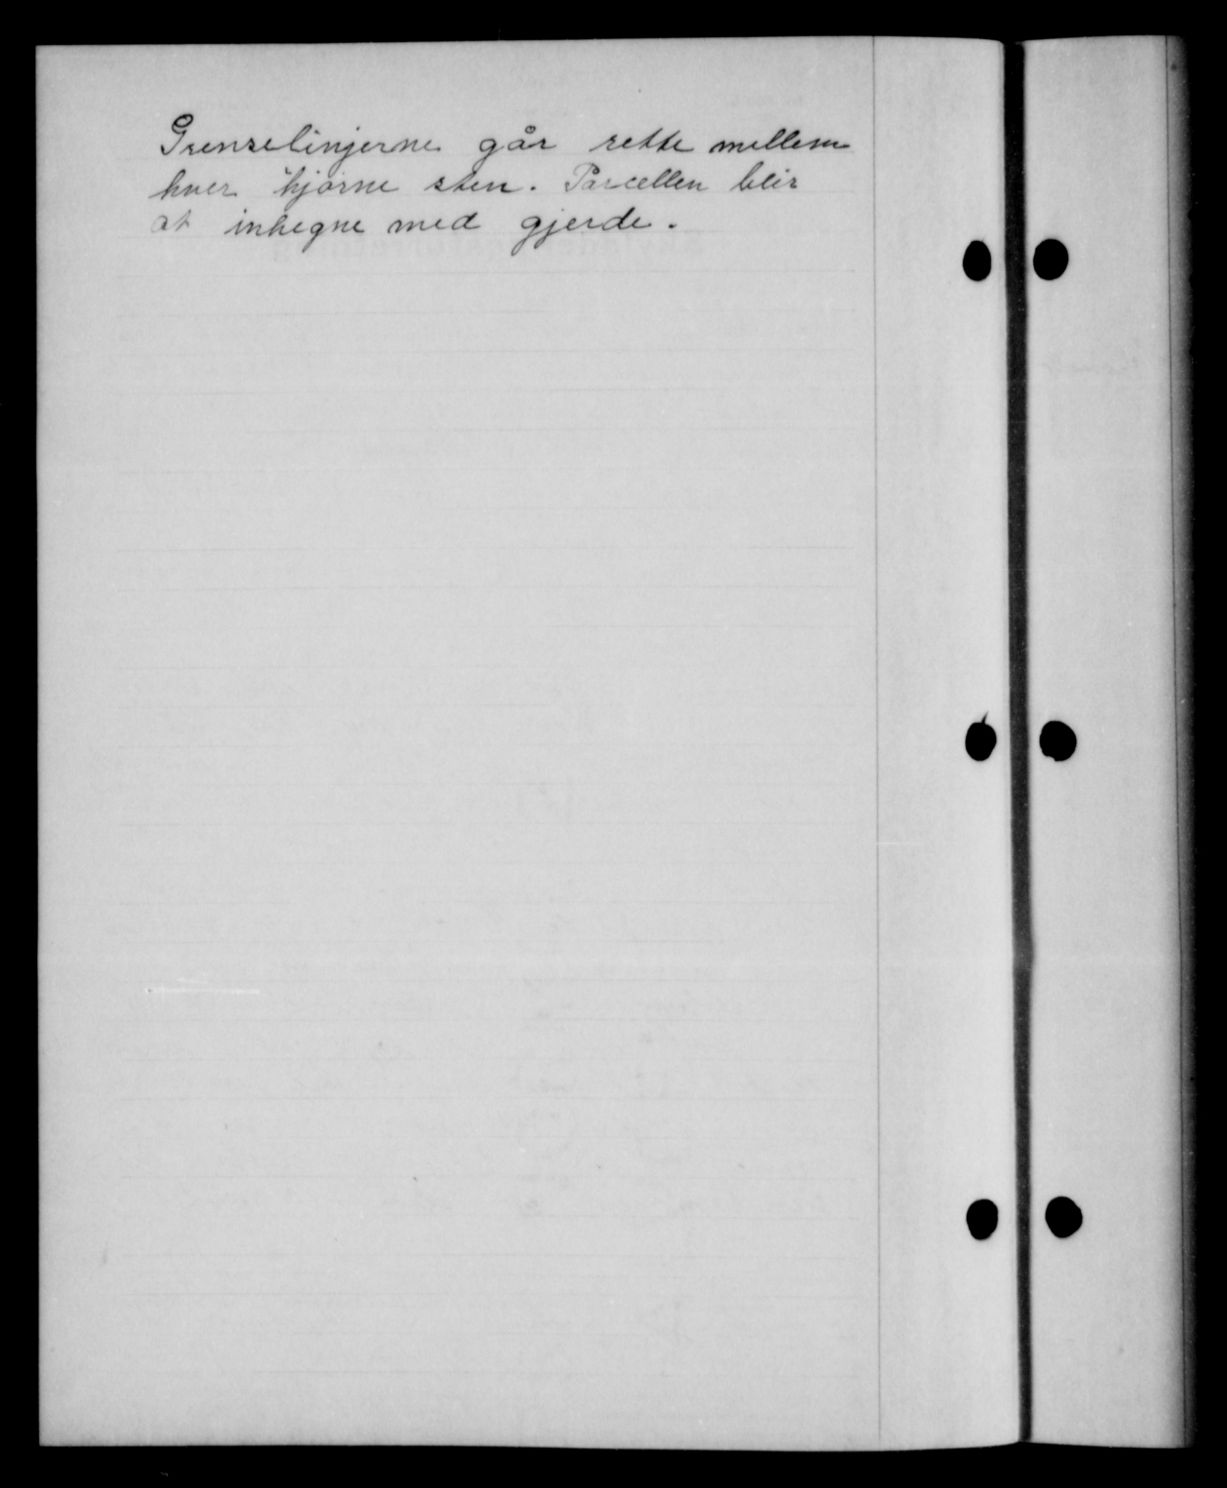 Grenselinjerne går rette mellem
hver hjørne sten. Parcellen blir
at inhegne med gjerde.